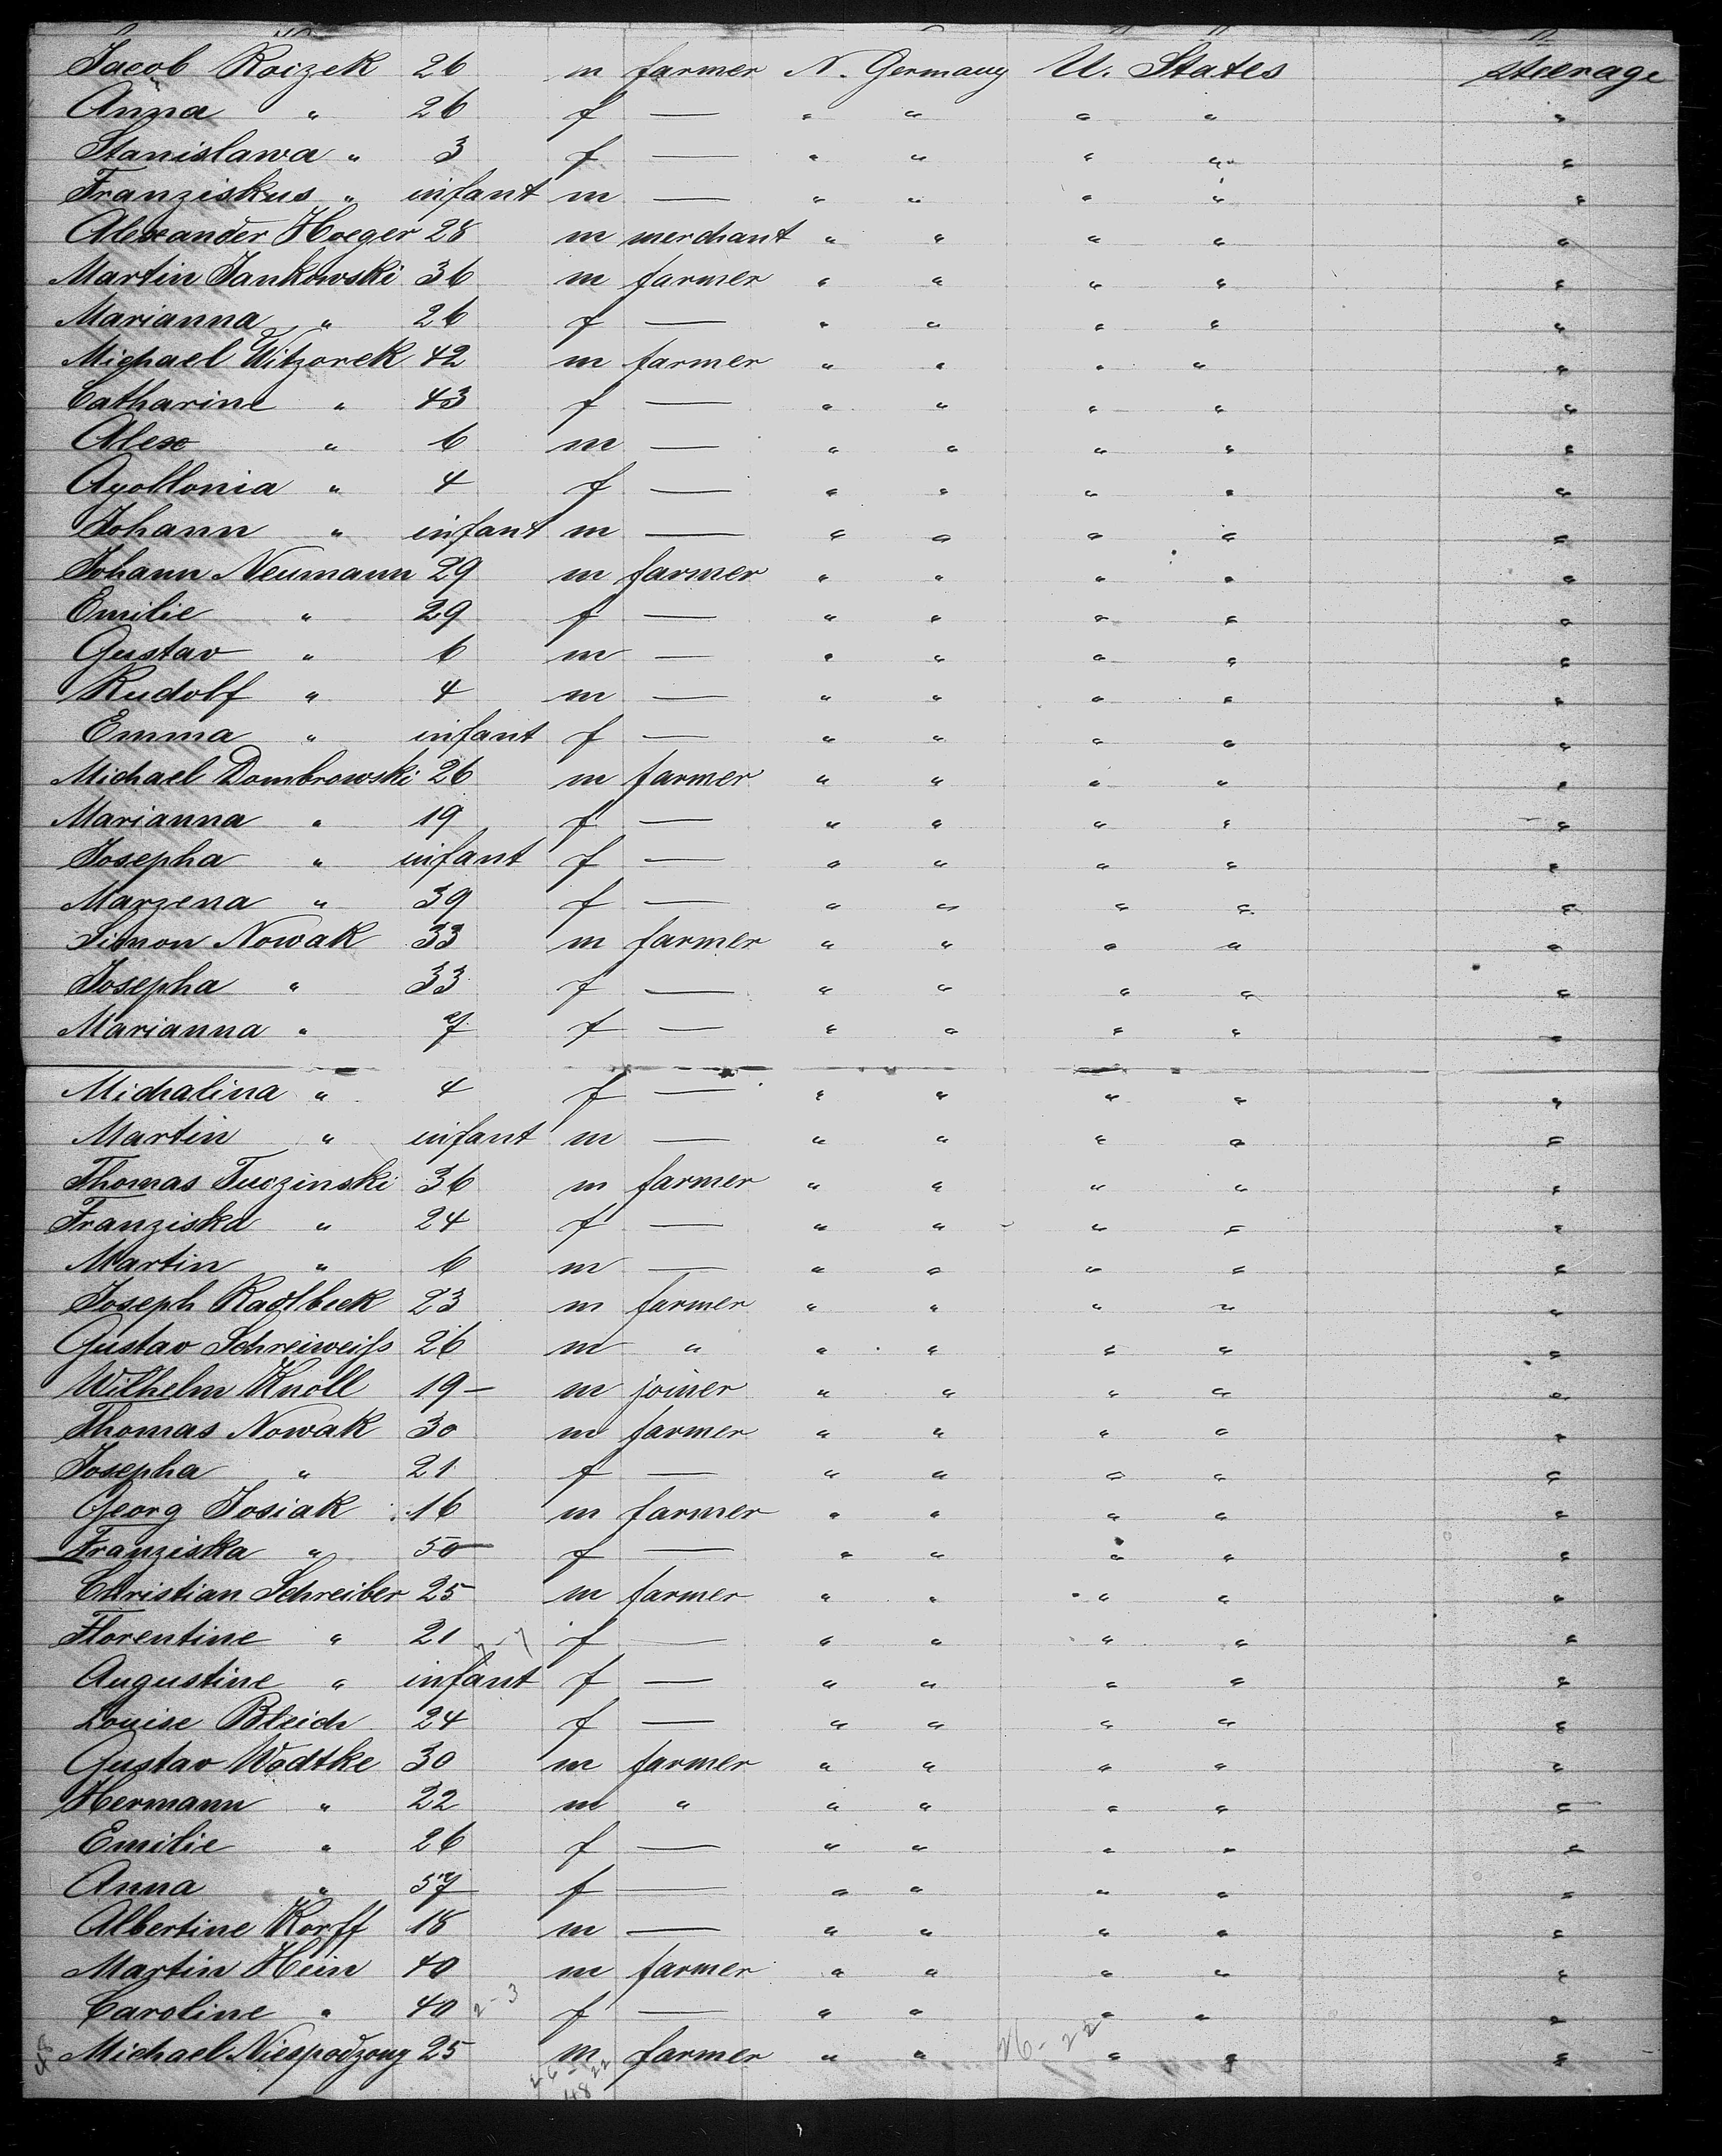 Jacob Roczek 26 m farmer N. Germany U. States steerage
Anna " 26 f — " " " " "
Stanislawa " 3 f — " " " " "
Franziskus " infant m — " " " " "
Alexander Hoeger 28 m merchant " " " " "
Martin Jankowski 36 m farmer " " " " "
Marianna " 26 f — " " " " "
Michael Witzorek 42 m farmer " " " " "
Catharine " 43 f — " " " " "
Alex " 6 m — " " " " "
Apollonia " 4 f — " " " " "
Johann " infant m — " " " " "
Johann Neumann 29 m farmer " " " " "
Emilie " 29 f — " " " " "
Gustav " 6 m — " " " " "
Rudolf " 4 m — " " " " "
Emma " infant f — " " " " "
Michael Dombrowski 26 m farmer " " " " "
Marianna " 19 f — " " " " "
Josepha " infant f — " " " " "
Marzena " 39 f — " " " " "
Simon Nowak 33 m farmer " " " " "
Josepha " 33 f — " " " " "
Marianna " 7 f — " " " " "
Michalina " 4 f — " " " " "
Martin " infant m — " " " " "
Thomas Tuczinski 36 m farmer " " " " "
Franziska " 24 f — " " " " "
Martin " 6 m — " " " " "
Joseph Radlbeck 23 m farmer " " " " "
Gustav Schreiweiss 26 m " " " " " "
Wilhelm Knoll 19 — m joiner " " " " "
Thomas Nowak 30 m farmer " " " " "
Josepha " 21 f — " " " " "
Georg Josiak 16 m farmer " " " " "
Franziska " 50 f — " " " " "
Christian Schreiber 25 m farmer " " " " "
Florentine " 21 f — " " " " "
Augustine " infant f — " " " " "
Louise Bleich 24 f — " " " " "
Gustav Wodtke 30 m farmer " " " " "
Hermann " 22 m " " " " " "
Emilie " 26 f — " " " " "
Anna " 57 f — " " " " "
Albertine Korff 18 m — " " " " "
Martin Hein 40 m farmer " " " " "
Caroline " 40 2-3 f — " " " " "
48 Michael Niespodzony 25 m farmer " " 26-22 " " "
26 22
48